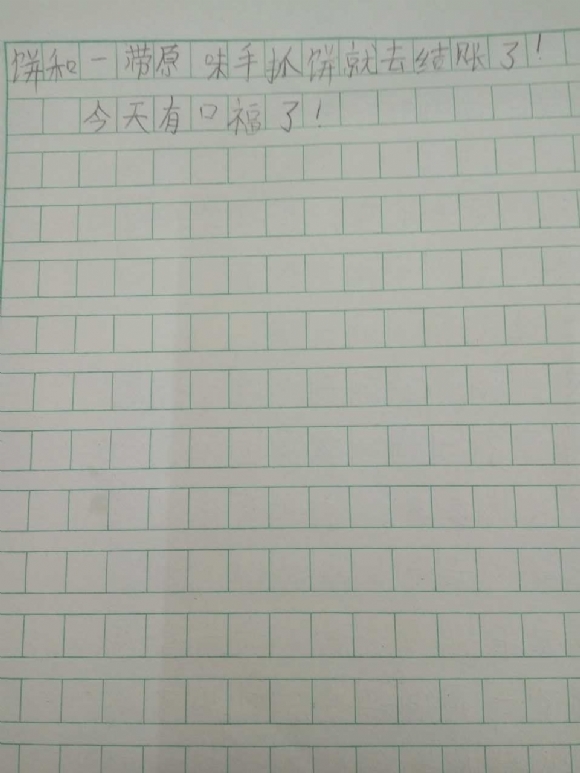 饼和一滞原味手抓饼就去结账了！
今天有口福了！